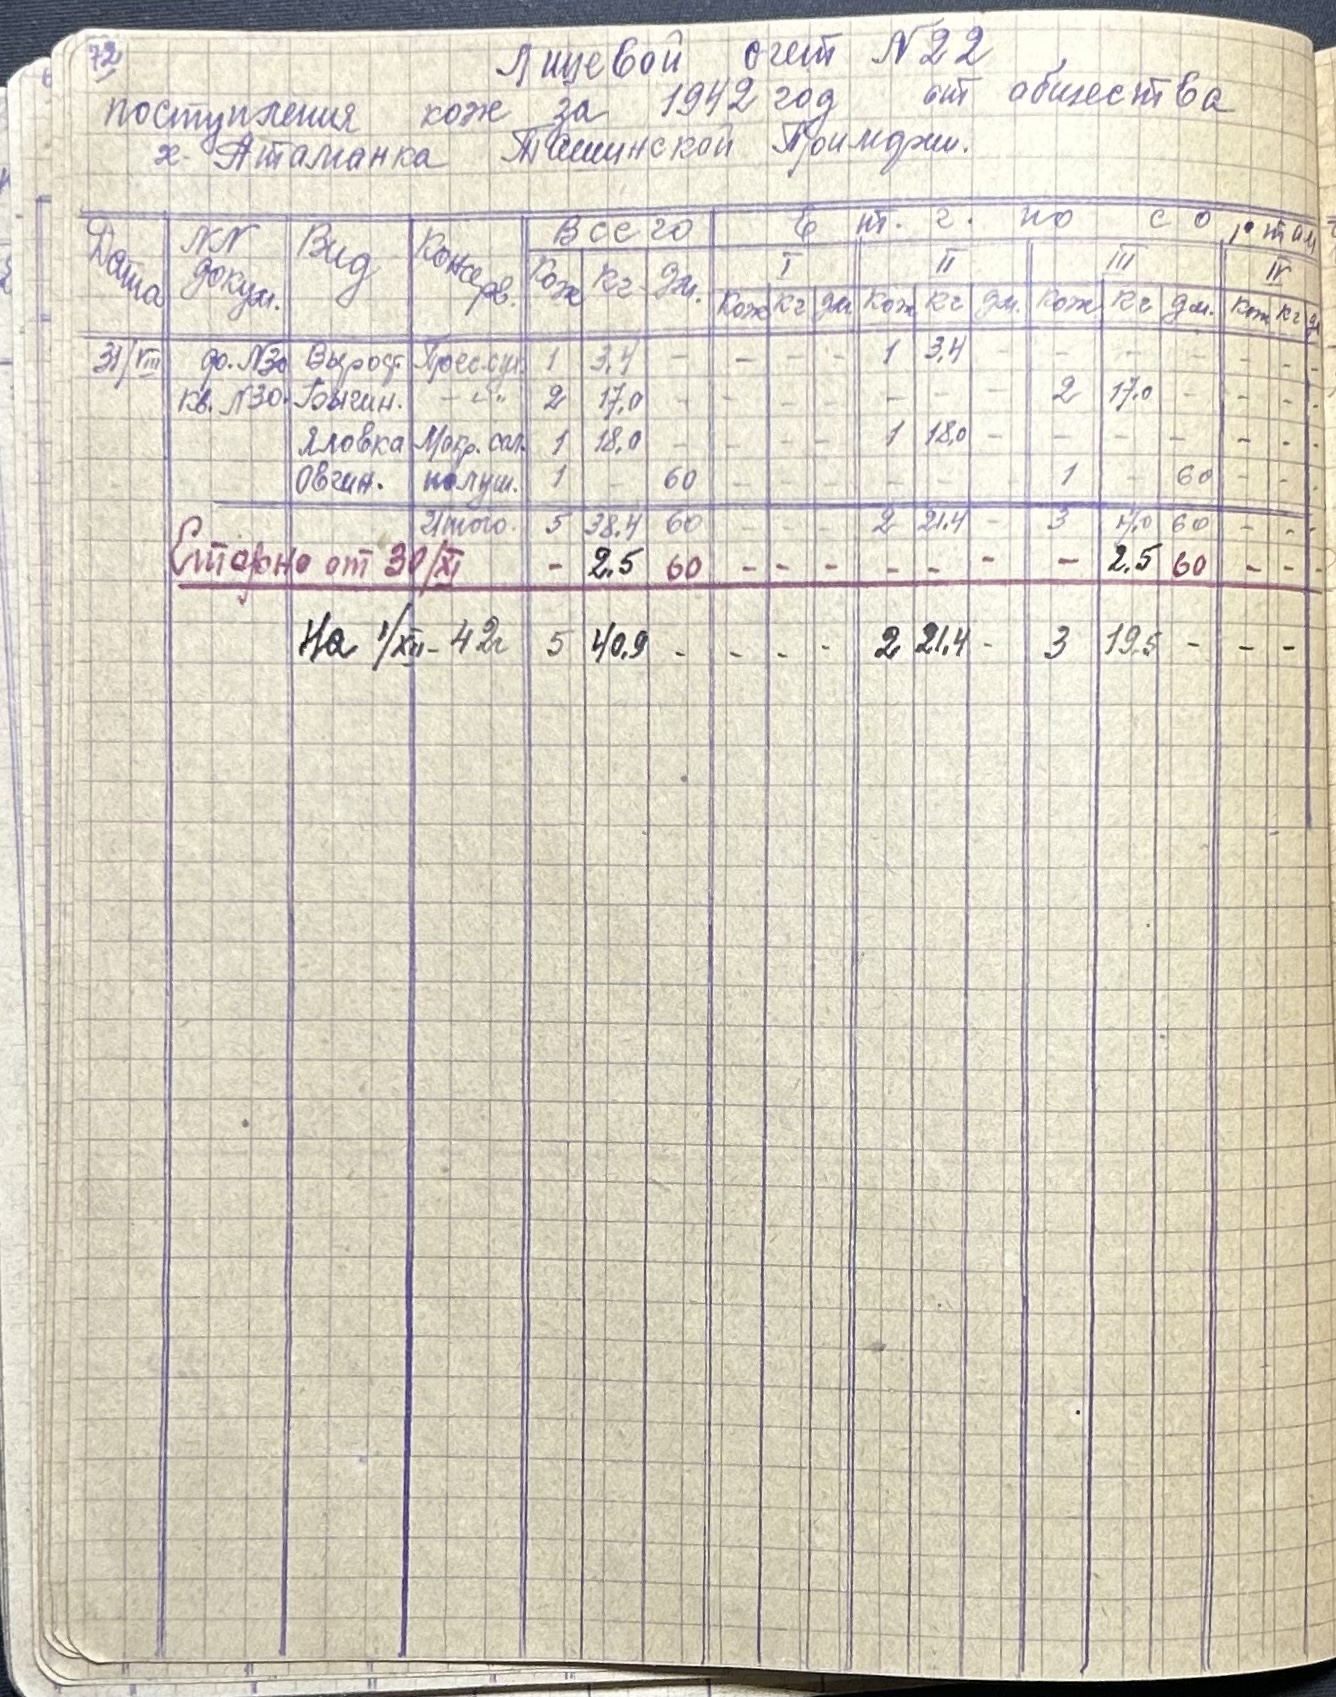 72
Лицевой счет N 22
поступления кож за 1942 год от общества
х. Атаманка Ташинской
Дата NN докум. Вид Консерв. Всего в т. ч. по сортам
I II III IV
Кож Кг дм. Кож Кг дм Кож Кг дм. Кож Кг дм. Кож Кг д
31/VIII до. N30 Вырост. Прес.сух. 1 3,4 - - - - 1 3,4 - - - - - - -
кв. N30. Бычин. -"- 2 17,0 - - - - - - - 2 17,0 - - - -
Яловка Мокр. сол. 1 18,0 - - - - 1 18,0 - - - - - - -
Овчин. 1 - 60 - - - - - - 1 - 60 - - -
Итого. 5 38.4 60 - - - 2 21.4 - 3 17.0 60 - - -
Сторно от 30/XI - 2.5 60 - - - - - - - 2.5 60 - - -
На 1/XII-42г 5 40.9 - - - - 2 21.4 - 3 19.5 - - -